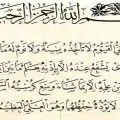 بسم الله الرحمن الرحيم
الحي القيوم لا تأخذه سنة ولا نوم له ما
يشفع عنده إلا بإذنه يعلم ما بين
من علمه إلا بما شاء وسع كرسيه
ولا يؤده حفظهما وهو العلي العظيم